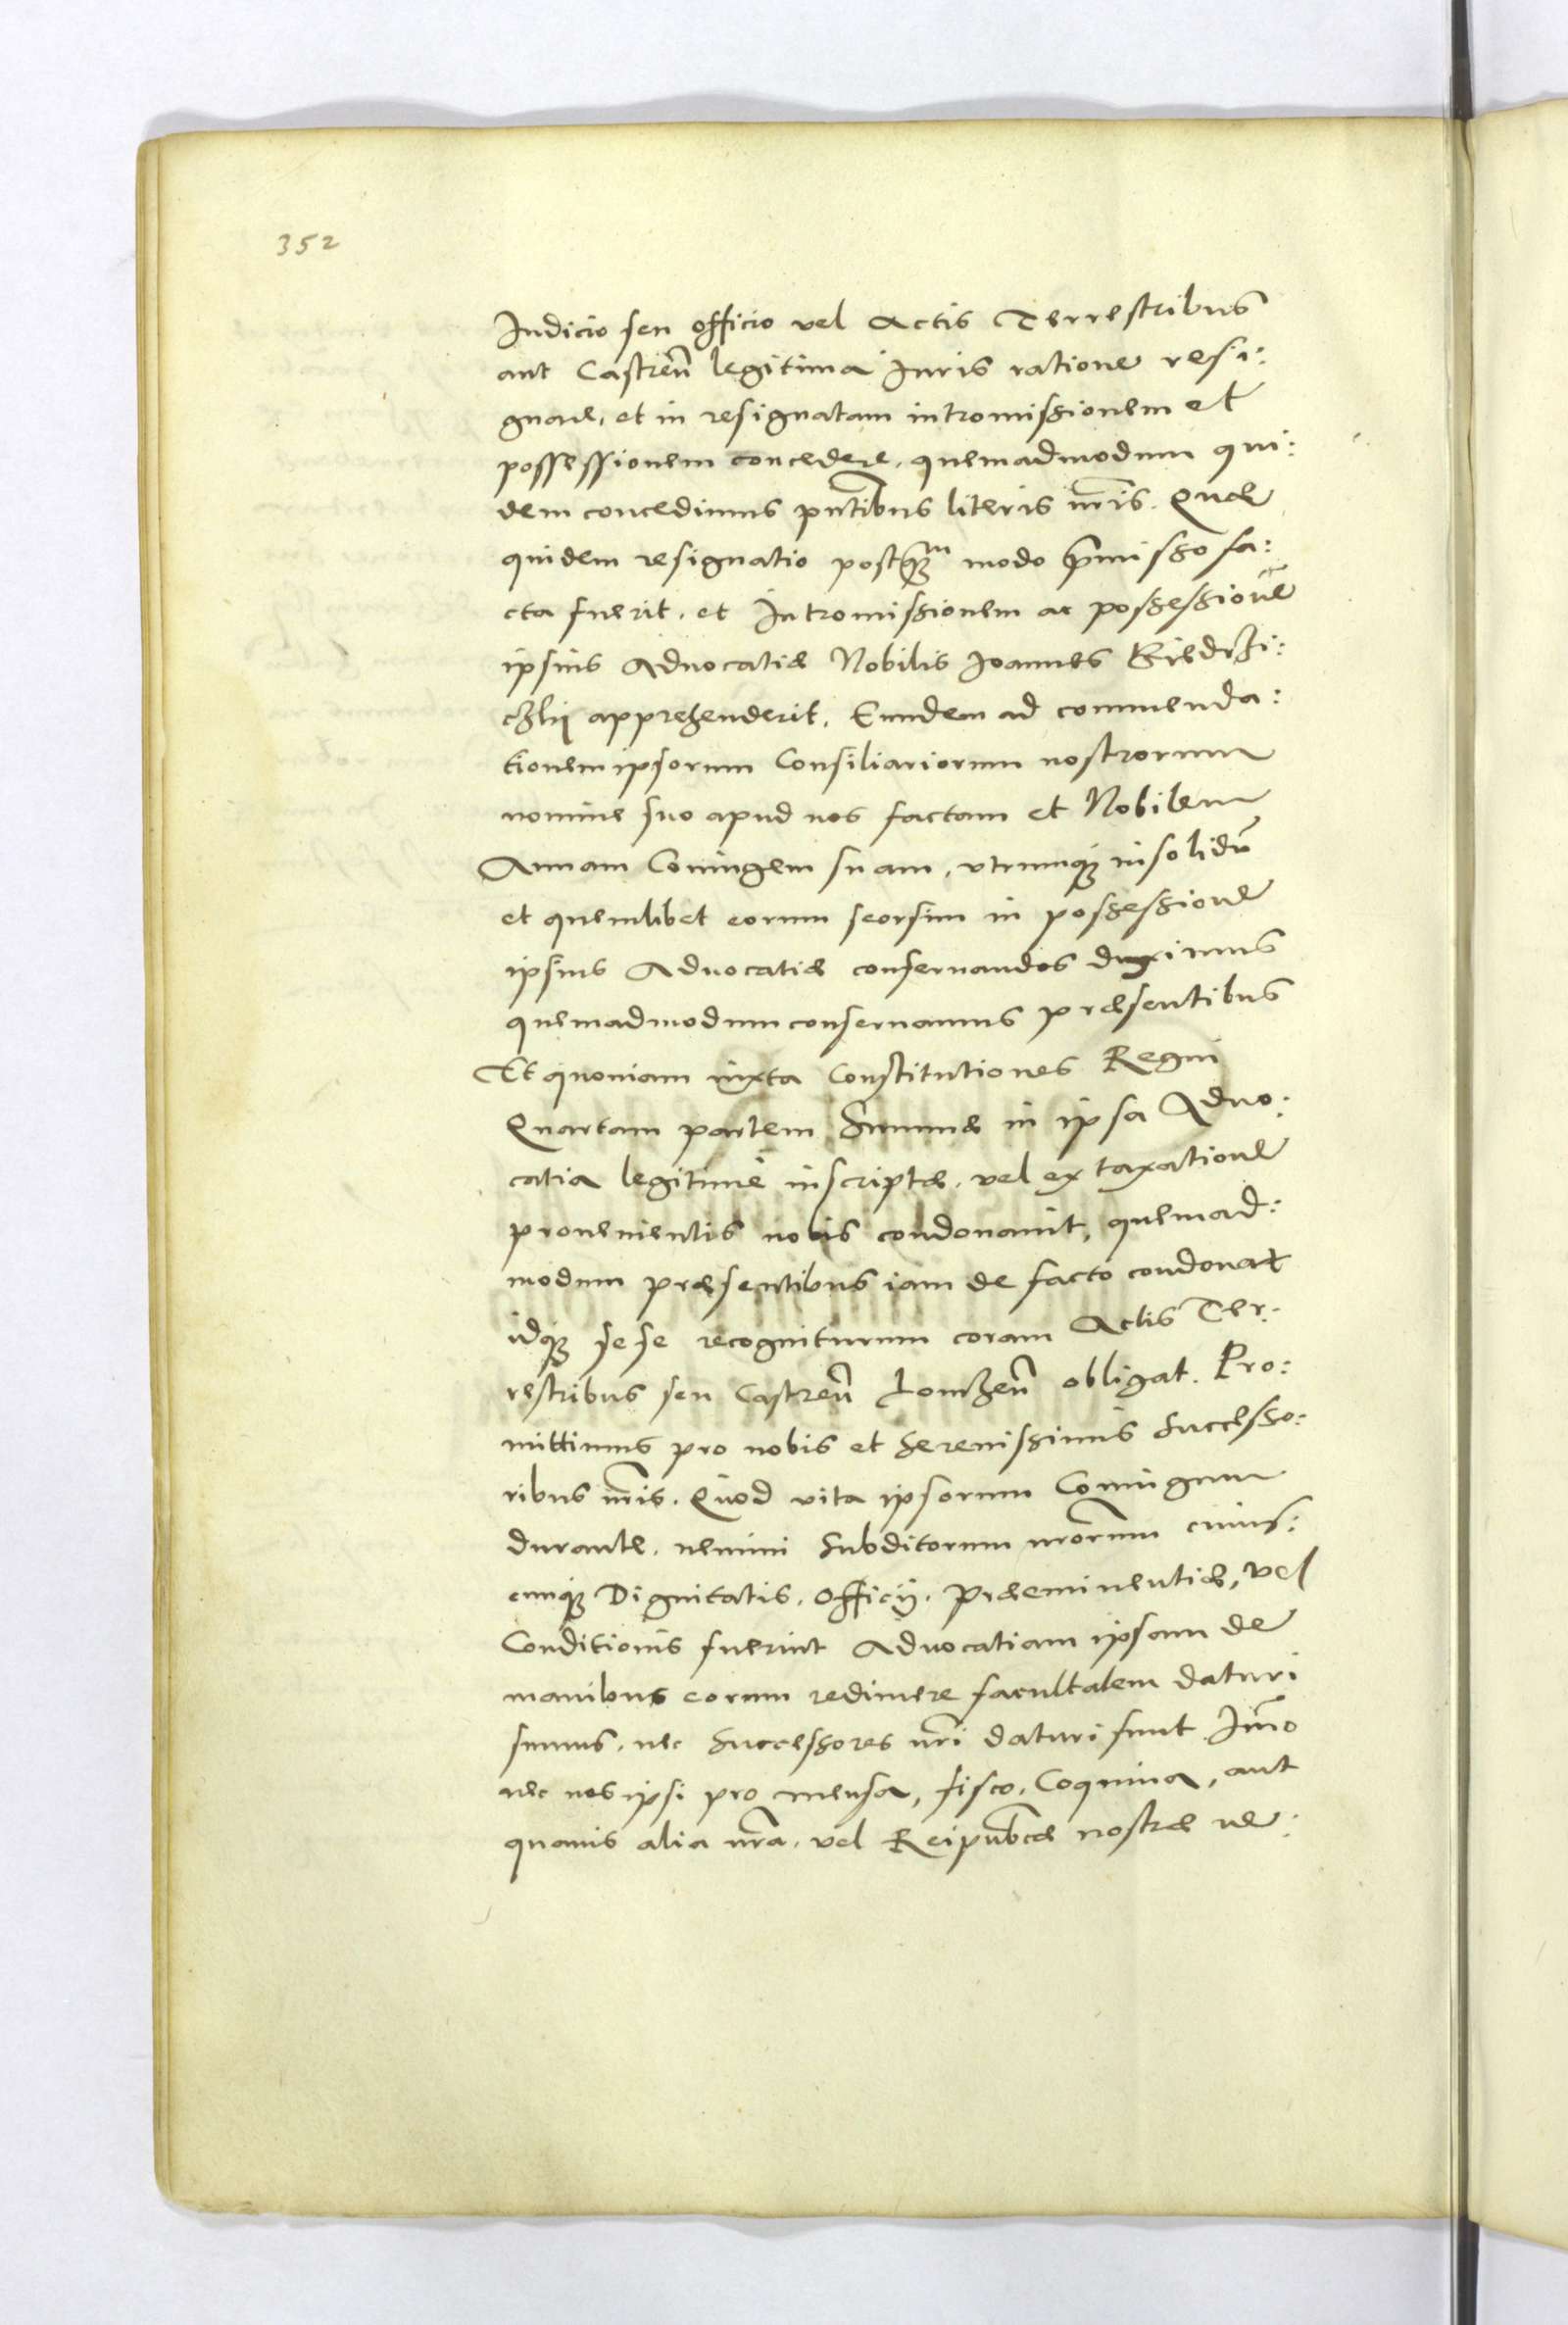 352
Iudicio seu officio vel Actis Terrestribus
aut Castreñ legitima Iuris ratione resi:
gnare, et in resignatam intromissionem et
possessionem concedere, quemadmodum qui:
dem concedimus pñtibus literis ñris. Quae
quidem resignatio postq̃m modo p̃misso fa:
cta fuerit, et Intromissionem ac possessionẽ
ipsius Aduocatiae Nobilis Ioannes Biedrzi:
czkij apprehenderit, Eundem ad commenda:
tionem ipsorum Consiliariorum nostrorum
nomine suo apud nos factam et Nobilem
Annam Coniugem suam, vtrumq₃ insolidũ
et quemlibet eorum seorsim in possessione
ipsius Aduocatiae conseruandos duximus
quemadmodum conseruamus praesentibus
Et quoniam iuxta Constitutiones Regni
Quartam partem Summae in ipsa Aduo:
catia legitimè inscriptae, vel ex taxatione
prouenientis nobis condonauit, quemad:
modum praesentibus iam de facto condonat
idq₃ se se recogniturum coram Actis Ter:
restribus seu Castreñ Lomzeñ obligat. Pro:
mittimus pro nobis et Serenissimis Successo:
ribus ñris. Quod vita ipsorum Coniugum
durante, nemini Subditorum ñrorum cuius:
cunq₃ Dignitatis, Officij, Praeeminentiae, vel
Conditionis fuerint Aduocatiam ipsam de
manibus eorum redimere facultatem daturi
sumus, nec Successores ñri daturi sunt. Im̃o
nec nos ipsi pro mensa, fisco, Coquina, aut
quauis alia ñra, vel Reipub̃cae nostrae ne: